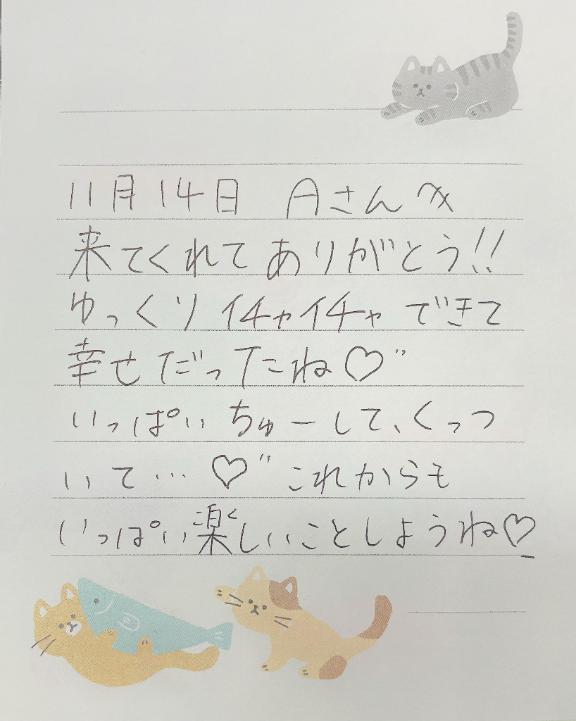 11月14日 Aさんへ
来てくれてありがとう!!
ゆっくりイチャイチャできて
幸せだったね♡"
いっぱいちゅーして、くっつ
いて…♡"これからも
いっぱい楽しいことしようね♡